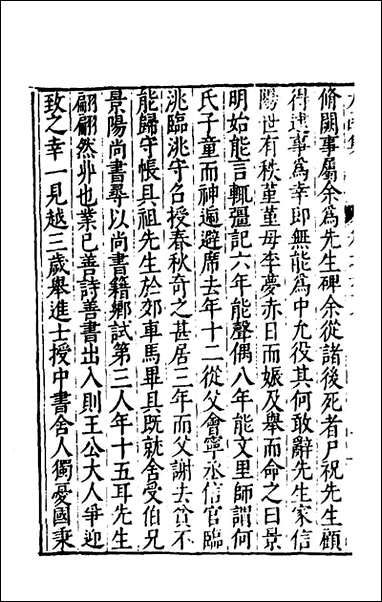 脩闕事屬余為先生碑余從諸後死者尸祝先生顧
得逮事為幸即無能為中尤役其何敢辭先生家信
陽世有秩菫菫母李夢赤日而娠及舉而命之曰景
明始能言輒彊記六年能聲偶八年能文里師謂何
氏子童而神逈避席去年十二從父會寧丞信官臨
洮臨洮守名授春秋奇之甚居三年而父謝去貧不
能歸守帳具祖先生於郊車馬畢具既就舍受伯兄
景陽尚書尋以尚書籍鄉試第三人年十五耳先生
翩翩然丱也業已善詩善書出入則王公大人爭迎
致之幸一見越三歲舉進士授中書舍人獨憂國秉